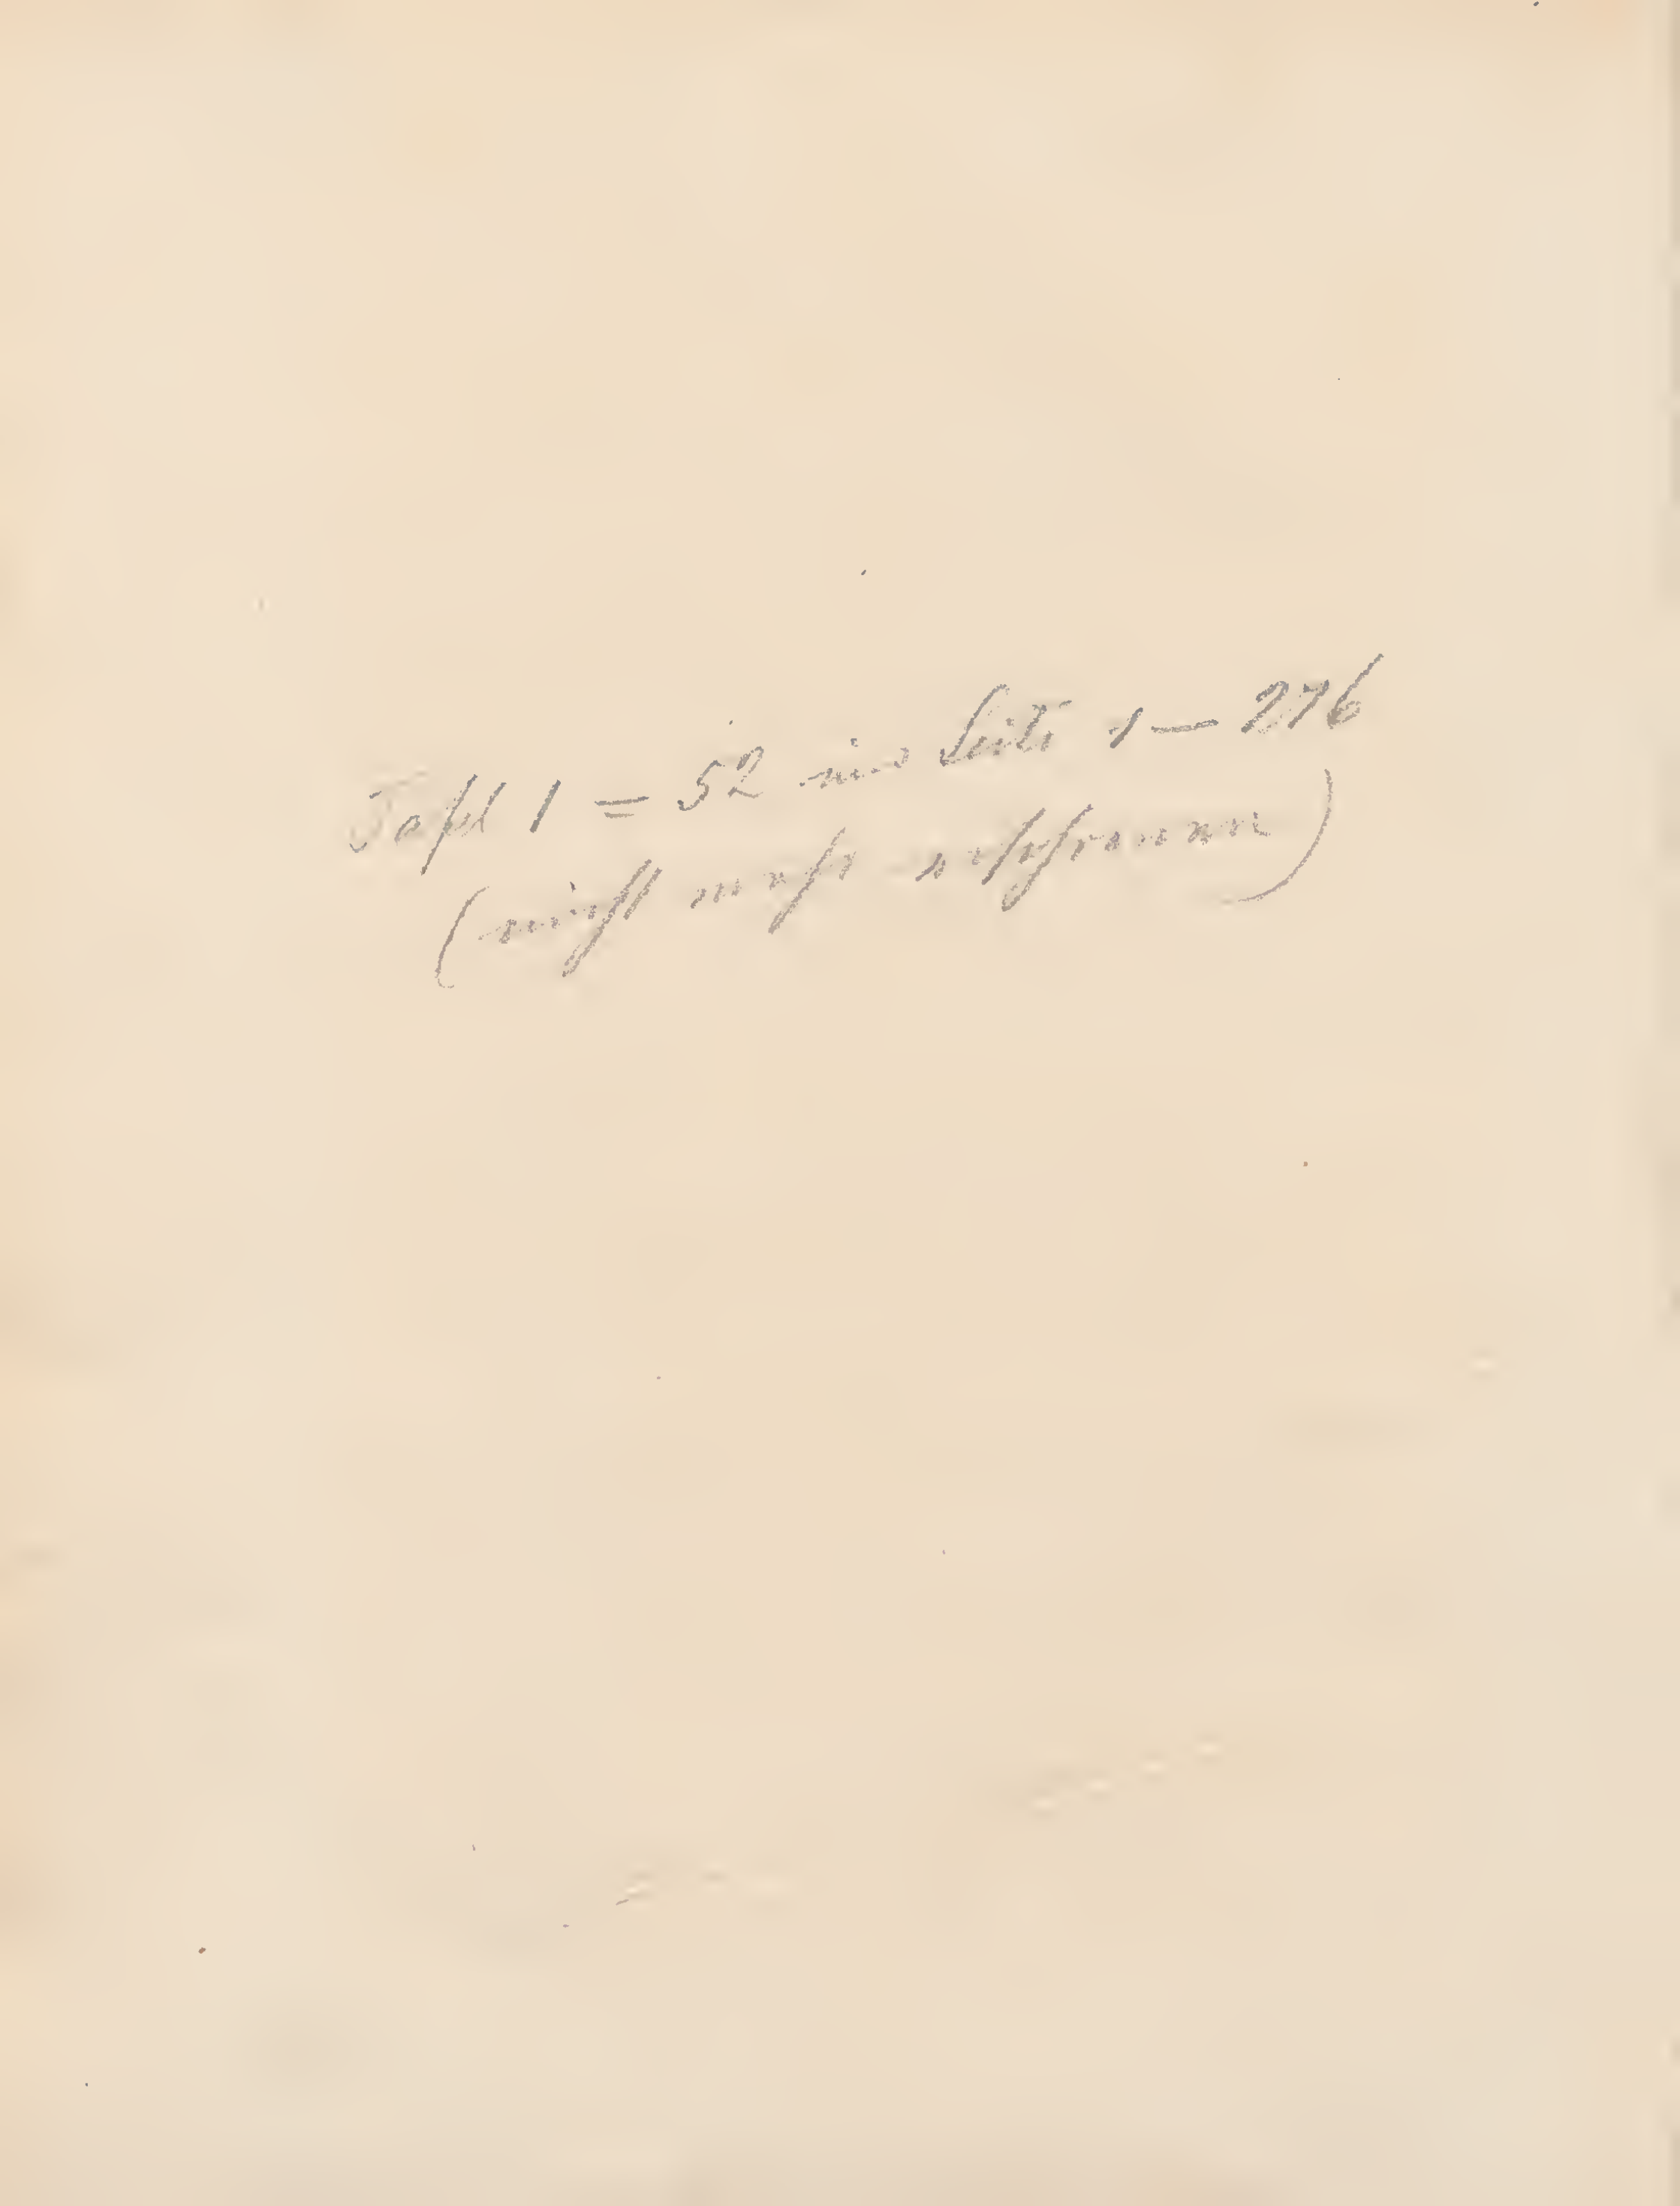 Tafel 1 = 52 und Seite 1 — 276
(nicht mehr erschienen)